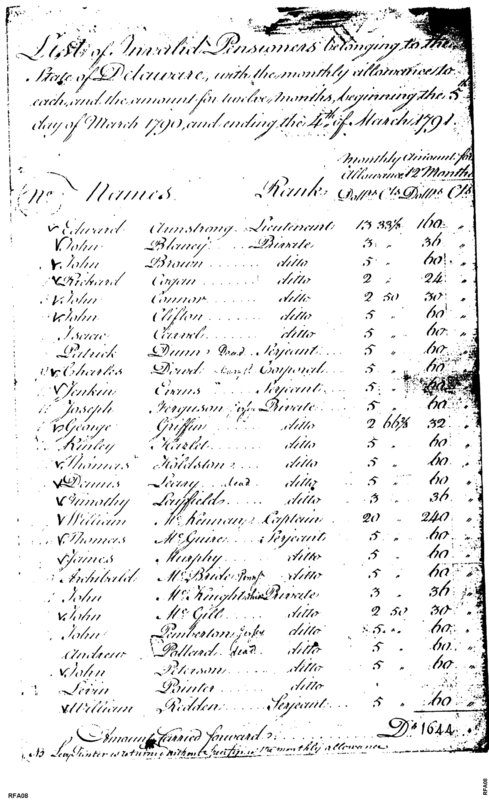 List of Invalid Pensioners belonging to the
State of Delaware, with the monthly allowance to
each, and the amount for twelve months, beginning the 5th
day of March 1790, and ending the 4th of March 1791.
Monthly Amount for
Allowance 12 Months
No Names Rank Dollrs Cts Dollrs Cts
Edward Armstrong Lieutenant 13 33⅓ 160 "
John Blaney Private 3 " 36 "
John Brown ditto 5 " 60 "
Richard Cogan ditto 2 " 24 "
John Connor ditto 2 50 30 "
John Clifton ditto 5 " 60 "
Isaac ditto 5 " 60 "
Patrick Dunn Dead Serjeant 5 " 60 "
Charles Dowd Corporal 5 " 60 "
Jenkin Evans Serjeant 5 " 60 "
Joseph Ferguson Private 5 " 60 "
George Griffin ditto 2 66⅔ 32 "
Kinley Hazlet ditto 5 " 60 "
Thomas Holdston ditto 5 " 60 "
Dennis Leary dead ditto 5 " 60 "
Timothy Layfield ditto 3 " 36 "
William McKennan Captain 20 " 240 "
Thomas McGuire Serjeant 5 " 60 "
James Murphy ditto 5 " 60 "
Archibald McBride ditto 5 " 60 "
John McKnight Private 3 " 36 "
John McGill ditto 2 50 30 "
John Pemberton ditto 5 " 60 "
Andrew Pollard dead ditto 5 " 60 "
John Peterson ditto 5 " 60 "
Levin Pointer ditto
William Redden Serjeant 5 " 60 "
Amount Carried forward Ds 1644 "
NB Pointer is returned without monthly allowance
RFA08
RFA08